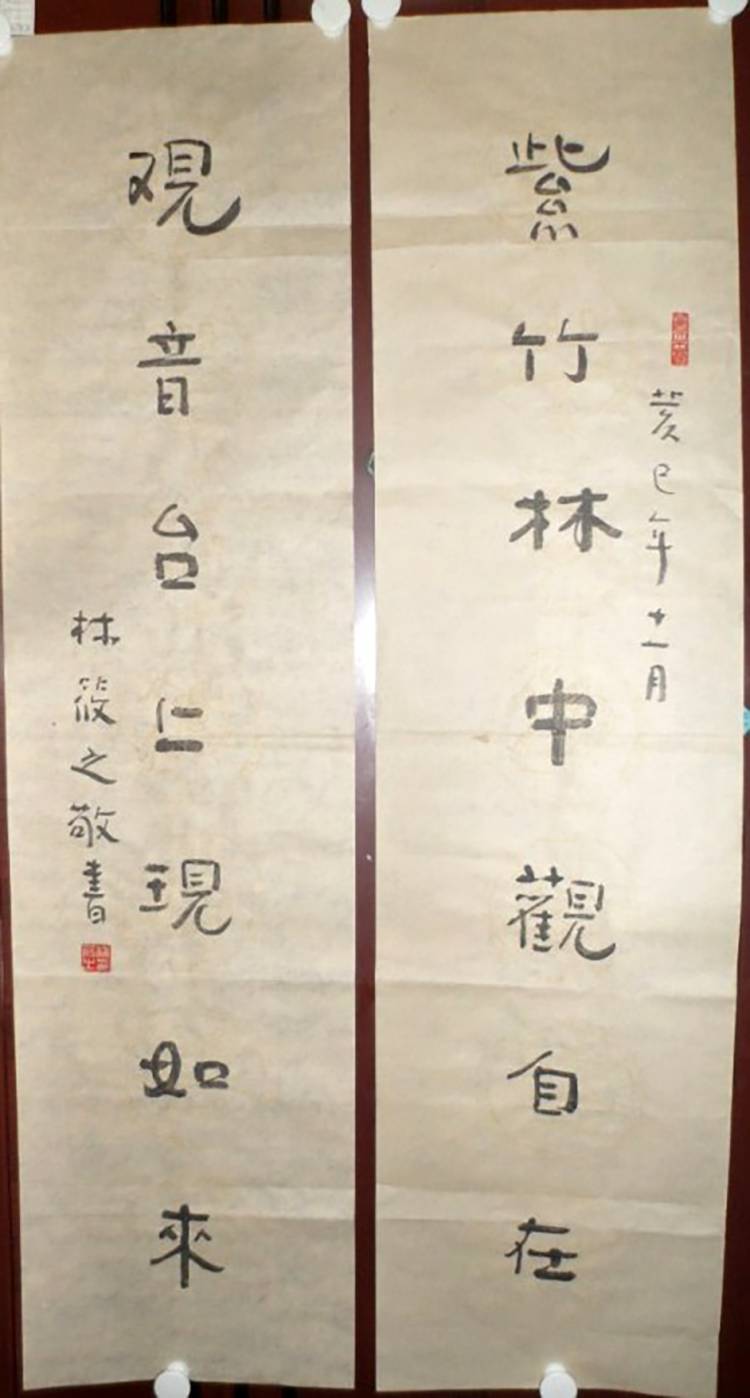 紫竹林中觀自在
癸巳年十一月
覌音台上現如來
林筱之敬書